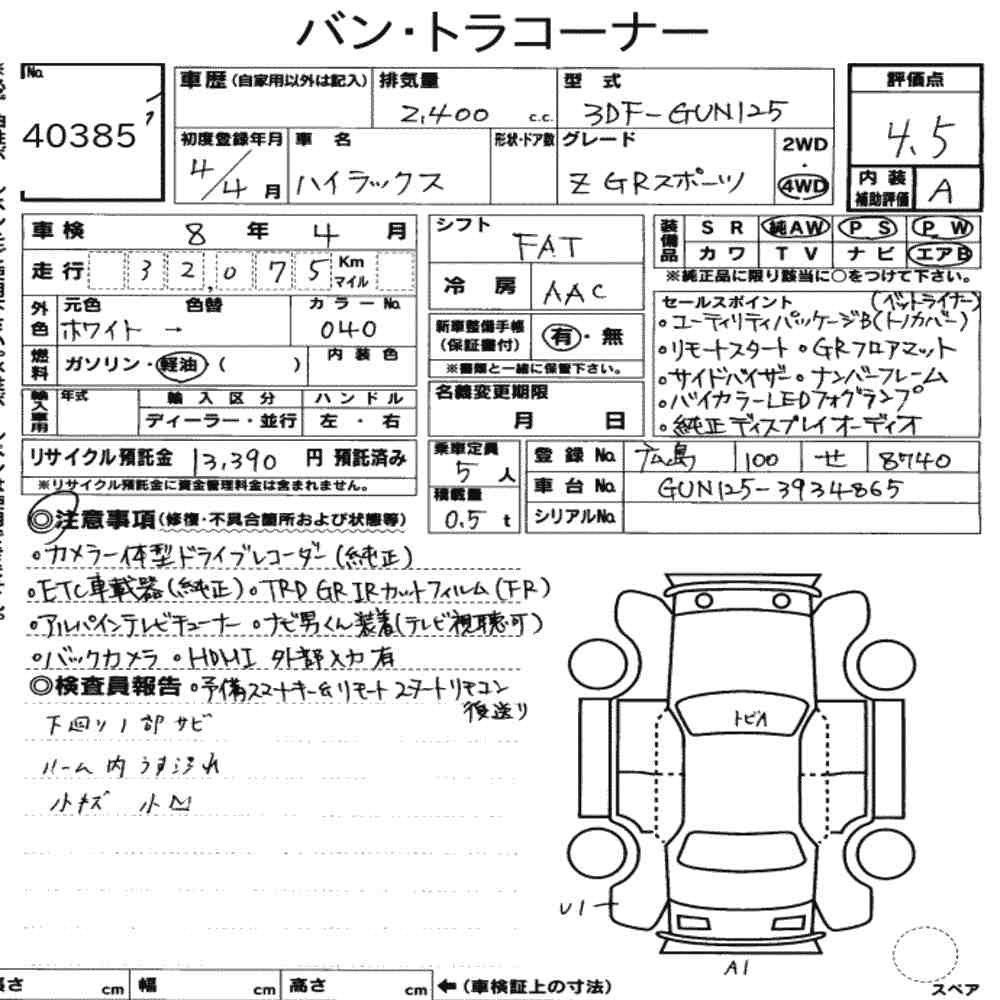 バン・トラコーナー
No.
40385
車歴(自家用以外は記入)
排気量
2,400 c.c.
型式
3DF-GUN125
評価点
4.5
初度登録年月
4/4月
車名
ハイラックス
形状・ドア数
グレード
Z GRスポーツ
2WD
・
4WD
内装
補助評価
A
車検 8年 4月
走行 32,075 Km
マイル
外色
元色 色替 カラーNo.
ホワイト → 040
燃料
ガソリン・軽油・( )
内装色
輸入車用
年式
輸入区分
ハンドル
ディーラー・並行
左・右
リサイクル預託金 13,390 円 預託済み
※リサイクル預託金に資金管理料金は含まれません。
シフト
FAT
冷房 AAC
新車整備手帳
(保証書付)
有・無
※書類と一緒に保管下さい。
名義変更期限
月 日
乗車定員
5人
積載量
0.5 t
装備品
SR 純AW PS PW
カワ TV ナビ エアB
※純正品に限り該当に○をつけて下さい。
セールスポイント (ベットライナー)
・ユーティリティパッケージB(トノカバー)
・リモートスタート ・GRフロアマット
・サイドバイザー ・ナンバーフレーム
・バイカラーLEDフォグランプ
・純正ディスプレイオーディオ
登録No. 広島 100 せ 8740
車台No. GUN125-3934865
シリアルNo.
◎注意事項(修復・不具合箇所および状態等)
・カメラ一体型ドライブレコーダー(純正)
・ETC車載器(純正)・TRD GR IRカットフィルム(FR)
・アルパインテレビチューナー ・ナビ男くん装着(テレビ視聴可)
・バックカメラ ・HDMI 外部入力有
◎検査員報告 ・予備スマートキー&リモートスタートリモコン
後送り
下廻り1部サビ
ルーム内うすヨゴレ
小キズ 小凹
トビA
U1
A1
スペア
長さ cm 幅 cm 高さ cm ←(車検証上の寸法)